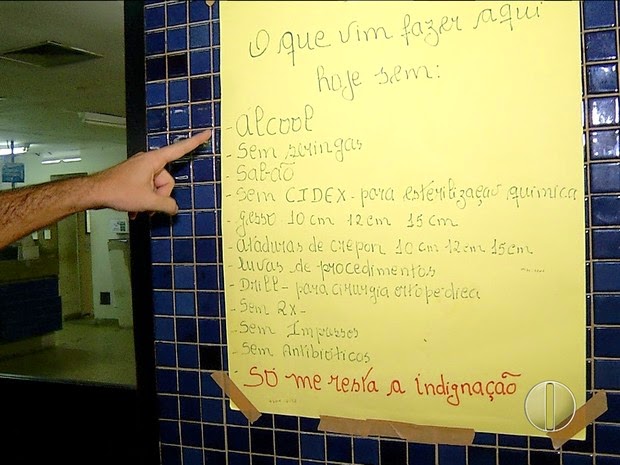 O que vim fazer aqui
hoje sem:
- álcool
- Sem seringas
- Sabão
- Sem CIDEX - para esterilização química
- gesso 10 cm 12 cm 15 cm
- ataduras de crepon 10 cm 12 cm 15 cm
- luvas de procedimentos
- Drill - para cirurgia ortopédica
- Sem RX -
- Sem Impressos
- Sem Antibióticos
- SÓ me resta a indignação